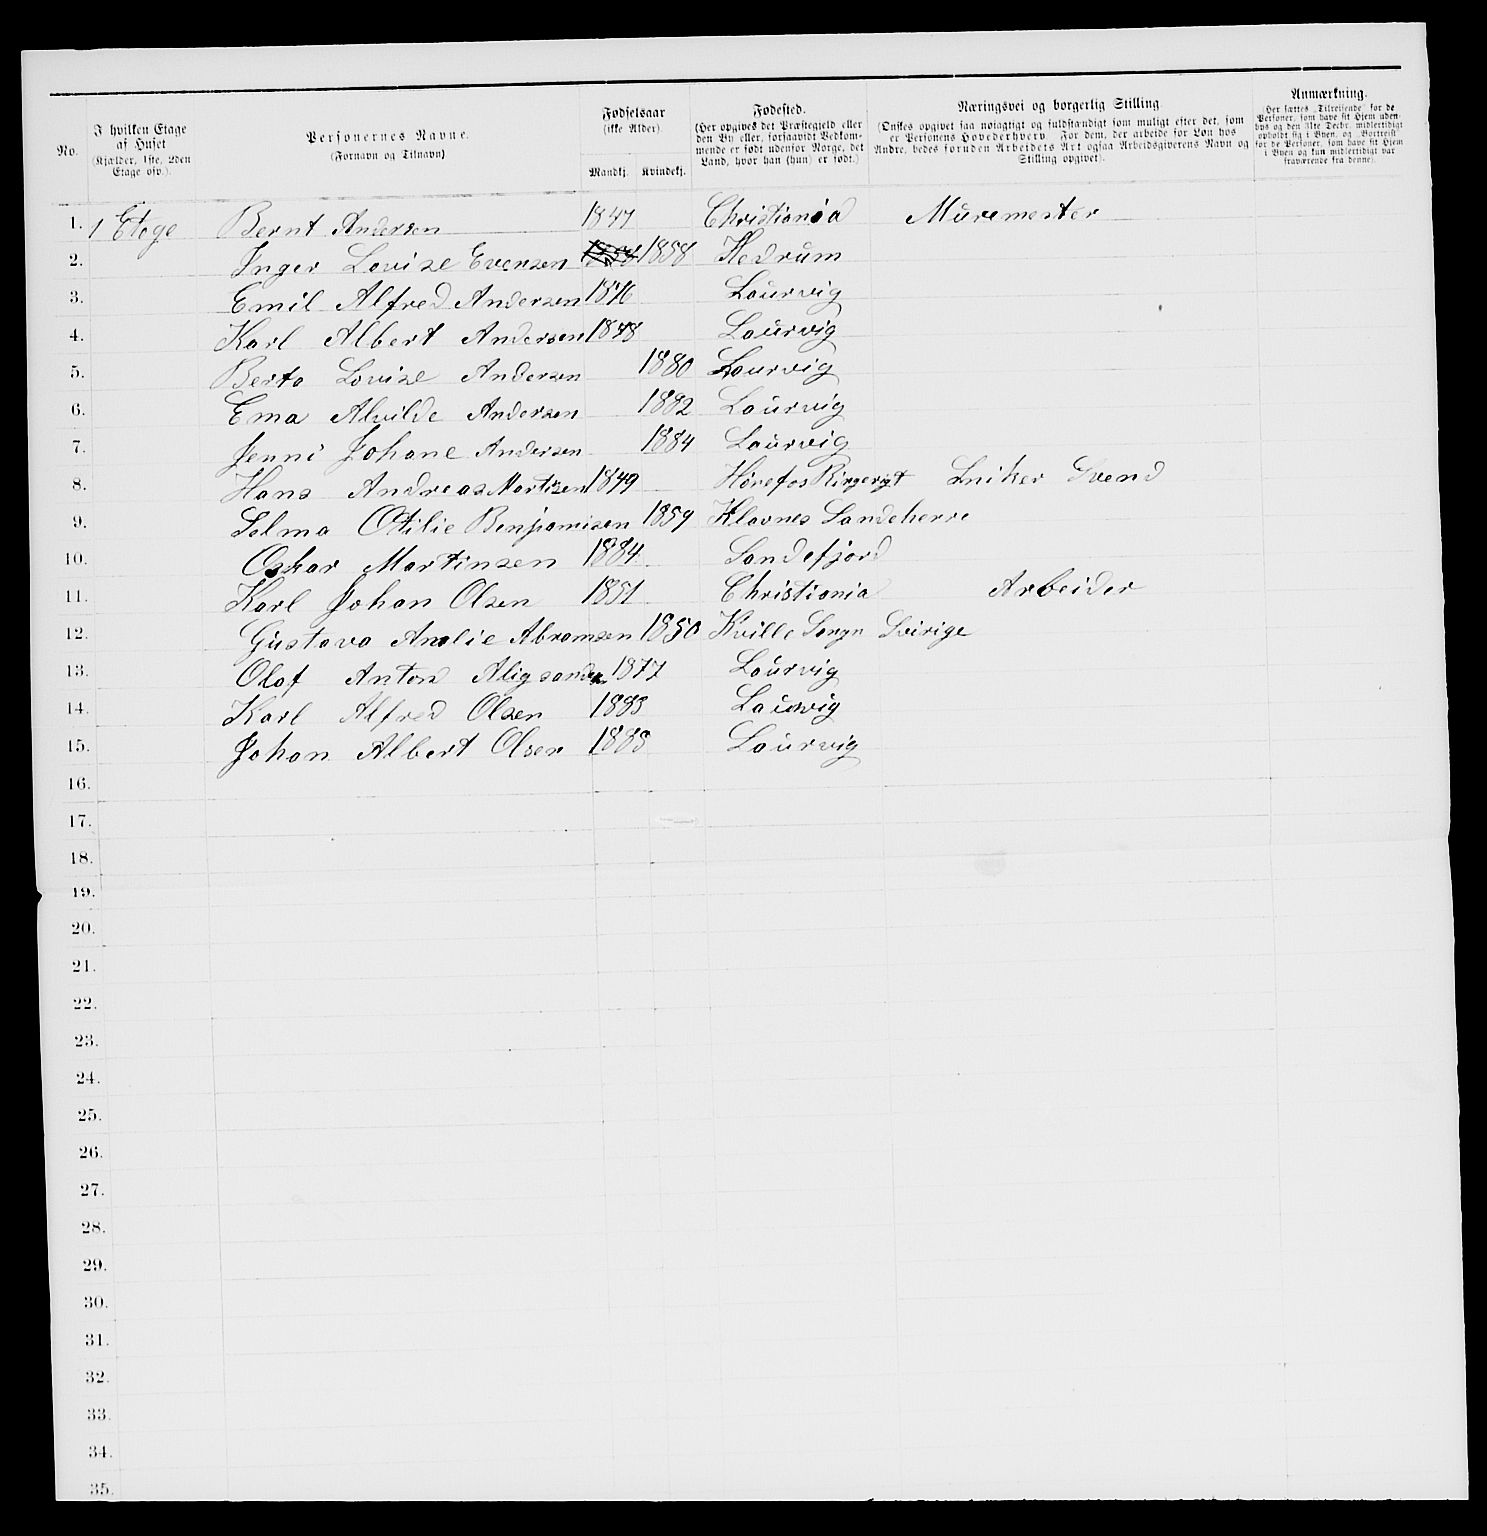 No.
I hvilken Etage
af Huset
(Kjælder, 1ste, 2den
Etage osv.).
Personernes Navne.
(Fornavn og Tilnavn)
Fødselsaar
(ikke Alder)
Mandkj. Kvindekj.
Fødested.
(Her opgives det Præstegjeld eller
den By eller, forsaavidt Vedkom-
mende er født udenfor Norge, det
Land, hvor han (hun) er født.)
Næringsvei og borgerlig Stilling.
(Ønskes opgivet saa nøiagtigt og fuldstændigt som muligt efter det, som
er Personens Hovederhverv. For dem, der arbeide for Løn hos
Andre, bedes foruden Arbeidets Art ogsaa Arbeidsgiverens Navn og
Stilling opgivet).
Anmærkning.
(Her sættes „Tilreisende“ for de
Personer, som have sit Hjem uden-
bys og den 31te Decbr. midlertidigt
opholdt sig i Byen, og „Bortreist“
for de Personer, som have sit Hjem
i Byen og kun midlertidigt var
fraværende fra denne).
1. 1 Etage Bernt Andersen 1847 Christiania Muremester
2. Inger Lovise Evensen 1858 Hedrum
3. Emil Alfred Andersen 1876 Laurvig
4. Karl Albert Andersen 1878 Laurvig
5. Berta Lovise Andersen 1880 Laurvig
6. Ema Alvilde Andersen 1882 Laurvig
7. Jenni Johane Andersen 1884 Laurvig
8. Hans Andreas Martisen 1849 Hønefos Ringerigt Sniker Svend
9. Selma Otilie Benjamisen 1859 Klavnes Sandeherre
10. Oskar Martinsen 1884 Sandefjord
11. Karl Johan Olsen 1851 Christiania Arbeider
12. Gustava Amalie Abramsen 1850 Kville Sogn Sverige
13. Olaf Anton 1877 Laurvig
14. Karl Alfred Olsen 1883 Laurvig
15. Johan Albert Olsen 1885 Laurvig
16.
17.
18.
19.
20.
21.
22.
23.
24.
25.
26.
27.
28.
29.
30.
31.
32.
33.
34.
35.